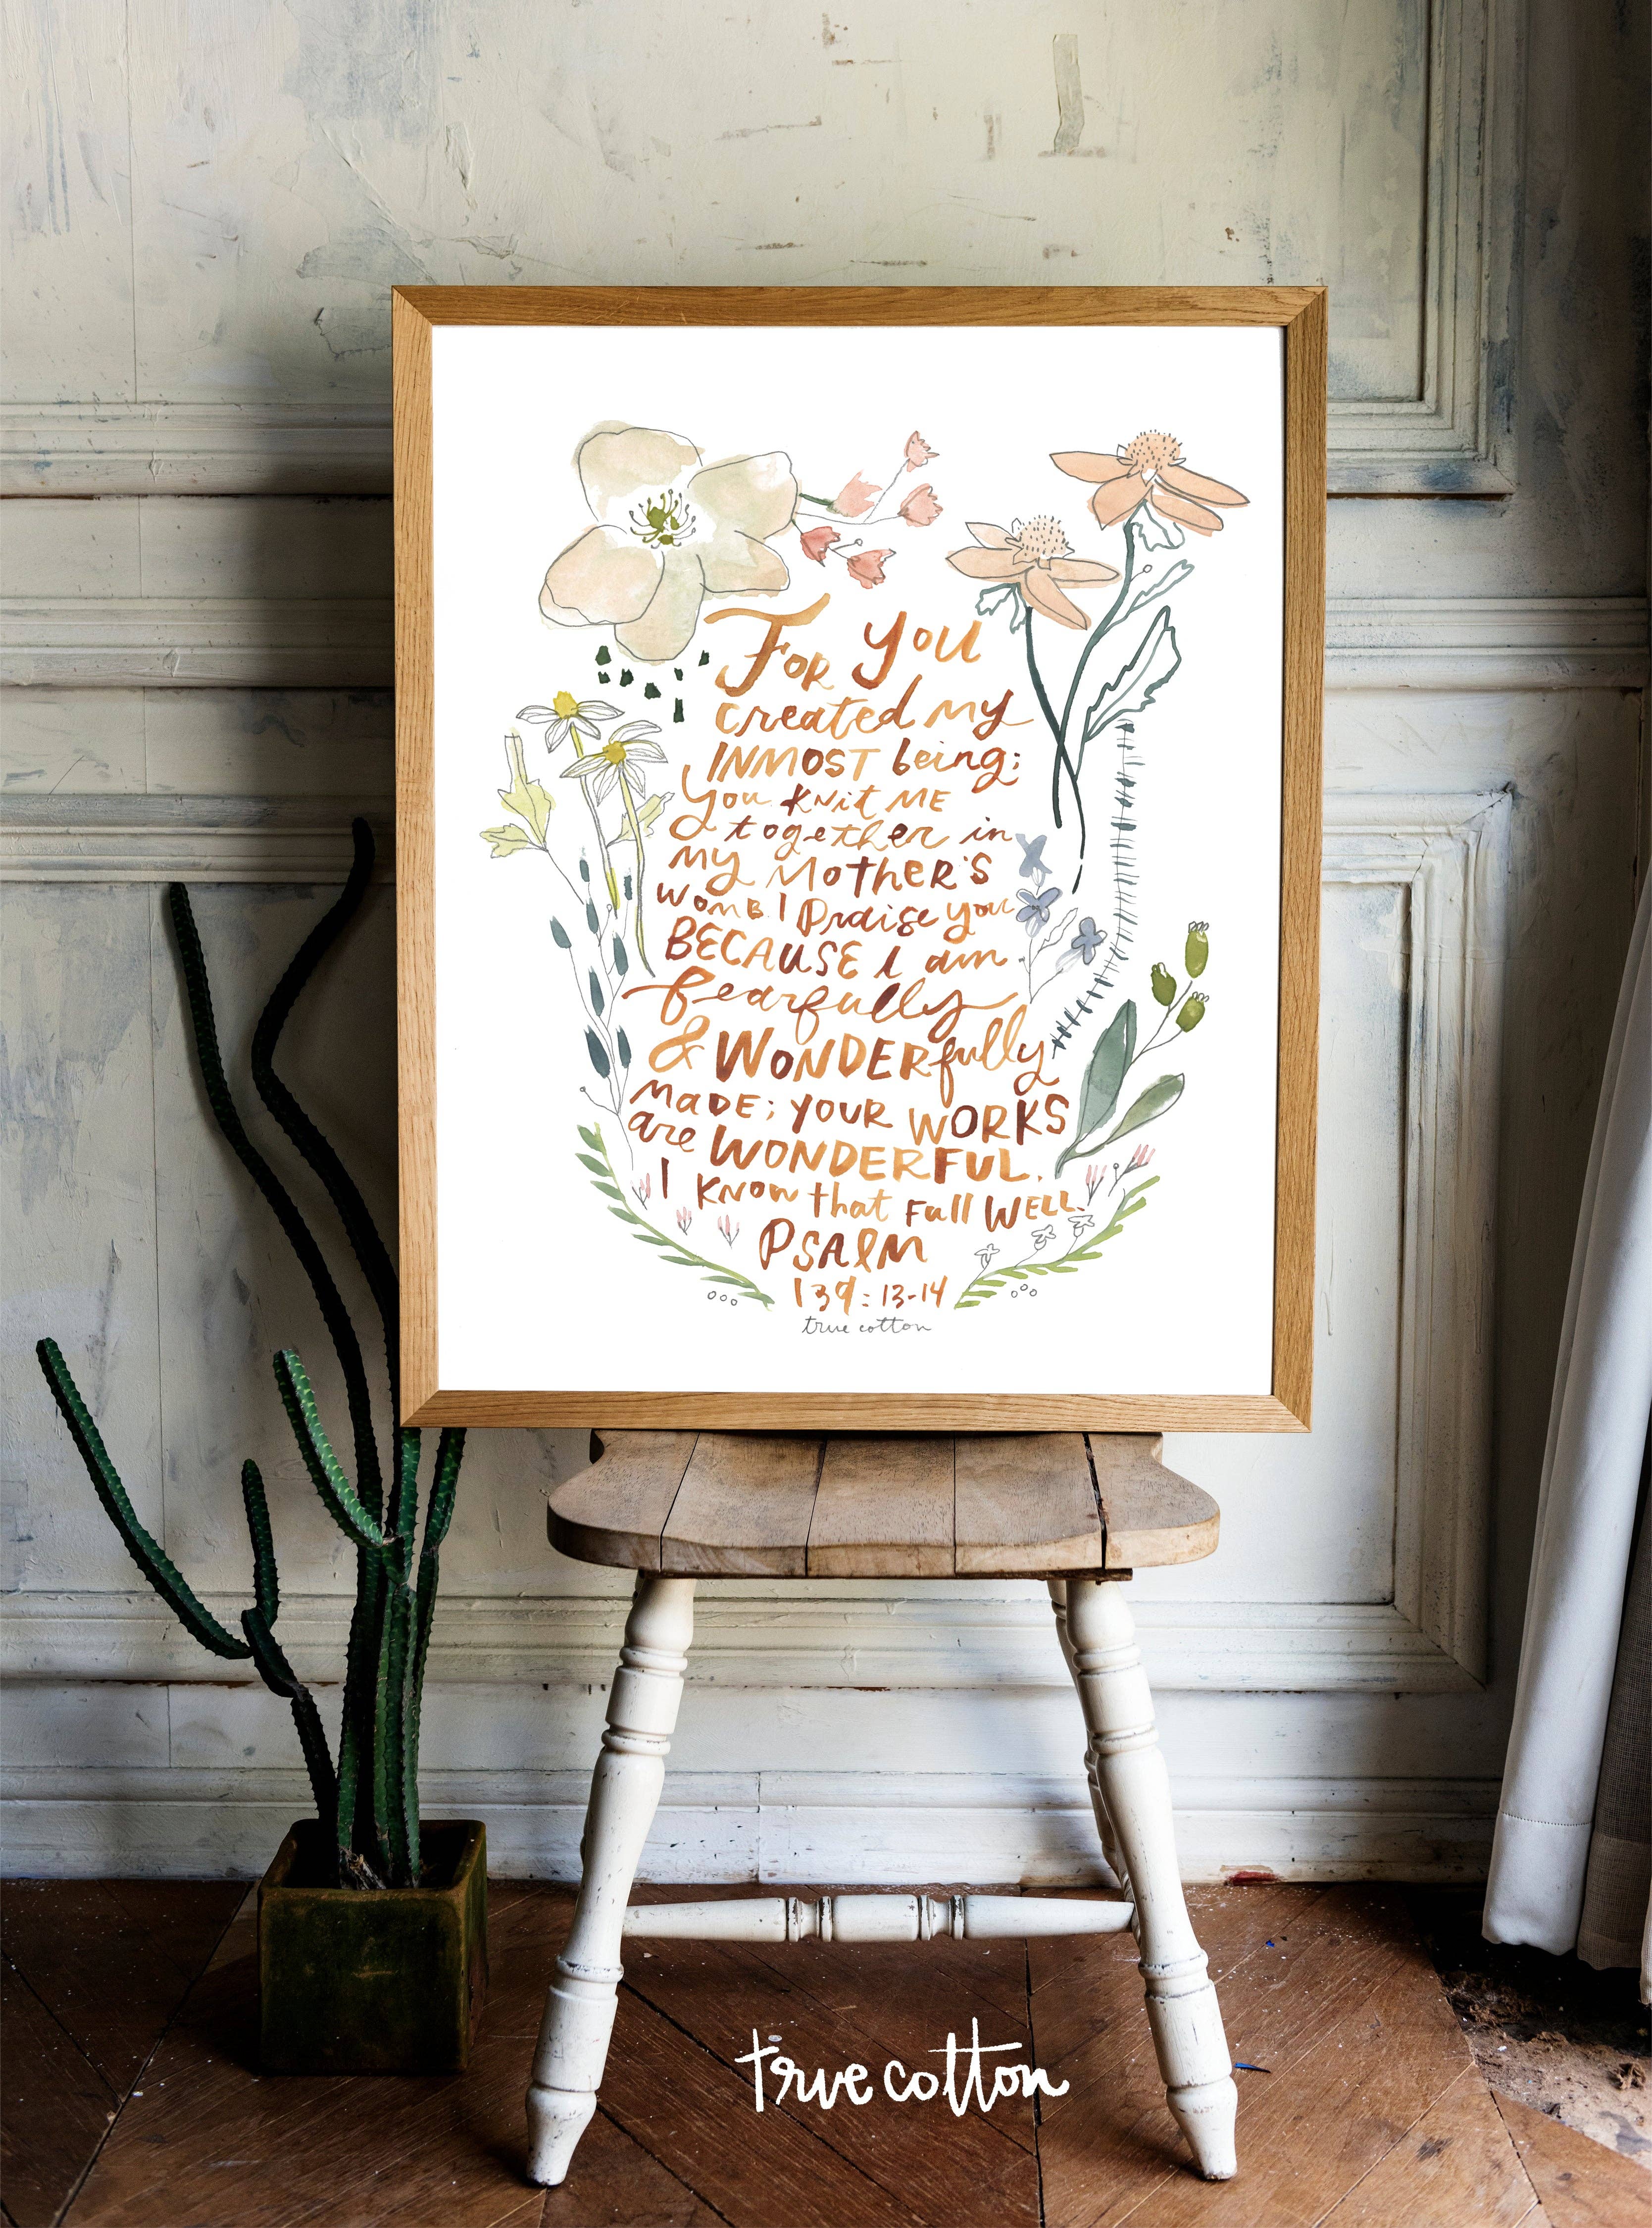 For You
created my
INMOST being;
you knit ME
together in
my Mother's
womb. I Praise you
BECAUSE I am
fearfully
& WONDERfully
MADE; YOUR WORKS
are WONDERFUL.
I know that Full WELL.
PSALM
139:13-14
true cotton
true cotton